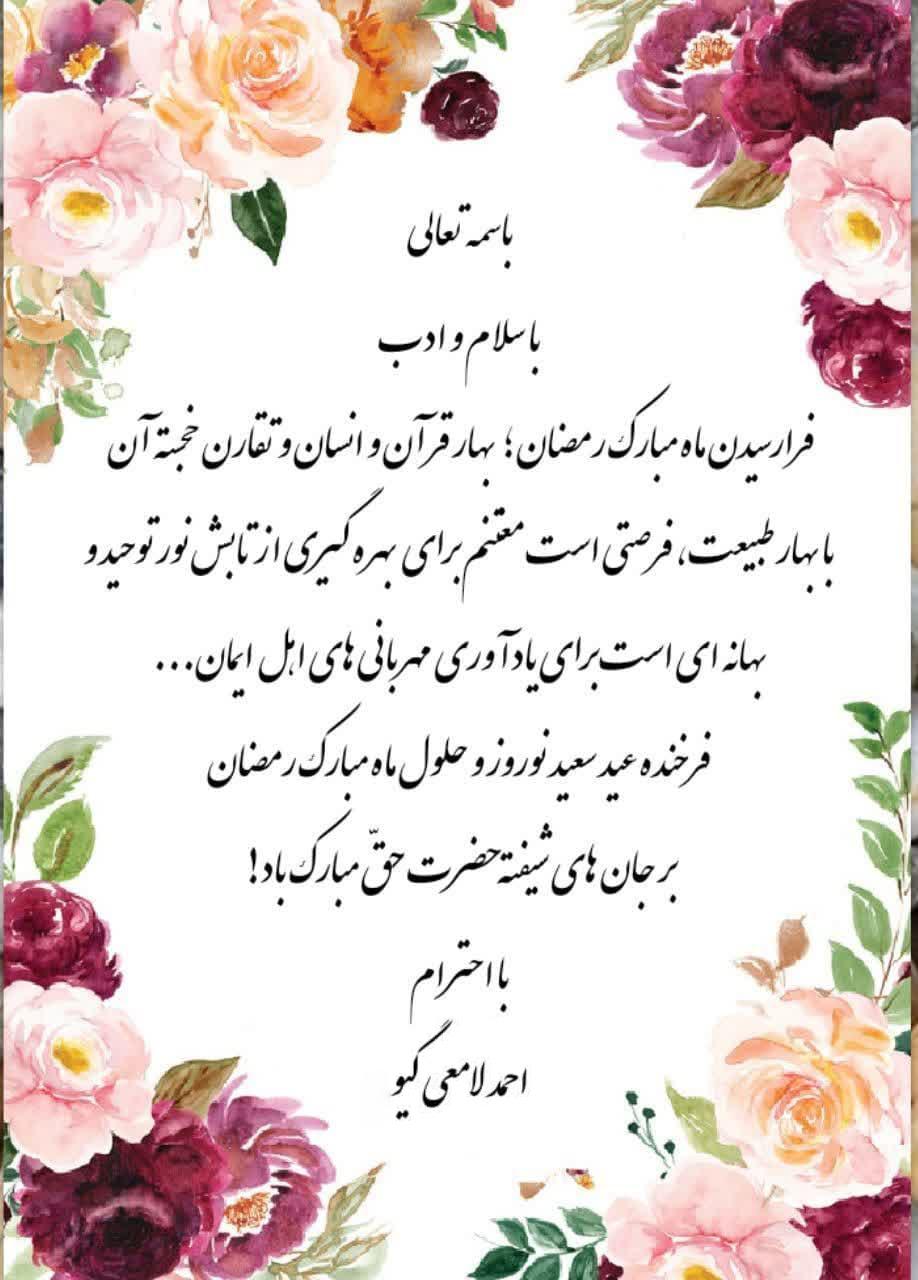 باسمه تعالی
با سلام و ادب
فرارسیدن ماه مبارک رمضان؛ بهار قرآن و انسان و تقارن خجسته آن
با بهار طبیعت، فرصتی است مغتنم برای بهره گیری از تابش نور توحید و
بهانه ای است برای یادآوری مهربانی های اهل ایمان...
فرخنده عید سعید نوروز و حلول ماه مبارک رمضان
بر جان های شیفته حضرت حقّ مبارک باد!
با احترام
احمد لامعی گیو